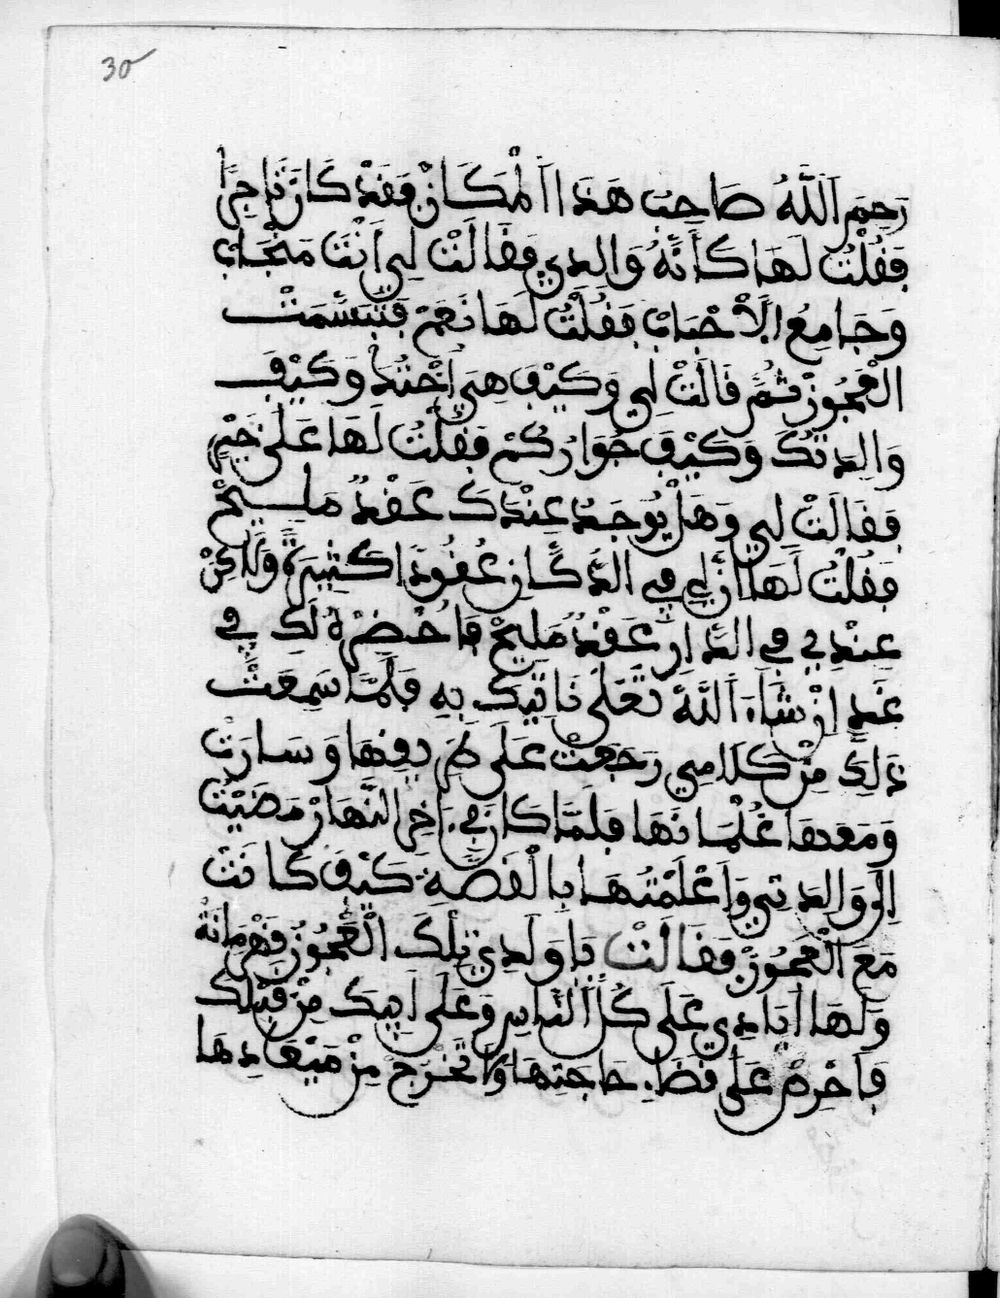 30
رَحِمَ اَللَّهُ صَاحِبَ هَذَا اَلْمَكَانْ فَقَدْ كَانَ تَاجِرًا
فَقُلْتُ لَهَا كَأَنَّهُ وَالِدِي فَقَالَتْ لِي اَنْتَ مَنْجَابْ
وَجَامِعُ الْأَحْبَابْ فَقُلْتُ لَهَا نَعَمْ فَتَبَسَّمَتْ
الْعَجُوزْ ثُمَّ قَالَتْ لِي وَكَيْفَ هِيَ اُخْتُكَ وَكَيْفَ
وَالِدَتُكَ وَكَيْفَ جَوَارُكُمْ فَقُلْتُ لَهَا عَلَى خَيْرٍ
فَقَالَتْ لِي وَهَلْ يُوجَدُ عِنْدَكَ عَقْدٌ مَلِيحْ
فَقُلْتُ لَهَا اِنَّ لِي فِي الدُّكَّانِ عُقُودًا كَثِيرَةً وَلَاكِنْ
عِنْدِي فِي الدَّارِ عَقْدٌ مَلِيحْ فَاُحْضِرْهُ لَكِ فِي
غَدٍ اِنْ شَاءَ اَللَّهُ تَعَلَى نَاتِيكَ بِهِ فَلَمَّا سَمِعَتْ
ذَلِكَ مِنْ كَلَامِي رَجَعَتْ عَلَى طَرِيقِهَا وَسَارَتْ
وَمَعَهَا غُلْمَانُهَا فَلَمَّا كَانَ فِي ءَاخِرِ النَّهَارْ مَضَيْتُ
اِلَى وَالِدَتِي وَاَعْلَمْتُهَا بِالْقَصَّةِ كَيْفَ كَانَتْ
مَعَ الْعَجُوزْ فَقَالَتْ يَا وَلَدِي تِلْكَ الْعَجُوزُ قَهْرَمَانَةُ
وَلَهَا اَيَادِي عَلَى كُلِّ النَّاسِ وَعَلَى اَبِيكَ مِنْ قَبْلِكَ
فَاَحْرِصْ عَلَى قَضَاءِ حَاجَتِهَا وَلَا تَخْرَجْ مِنْ مِيْعَادِهَا